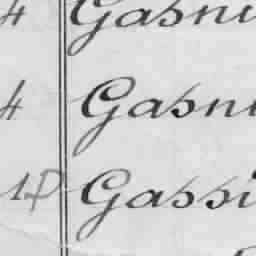 4 Gasni
4 Gasni
1P Gassi